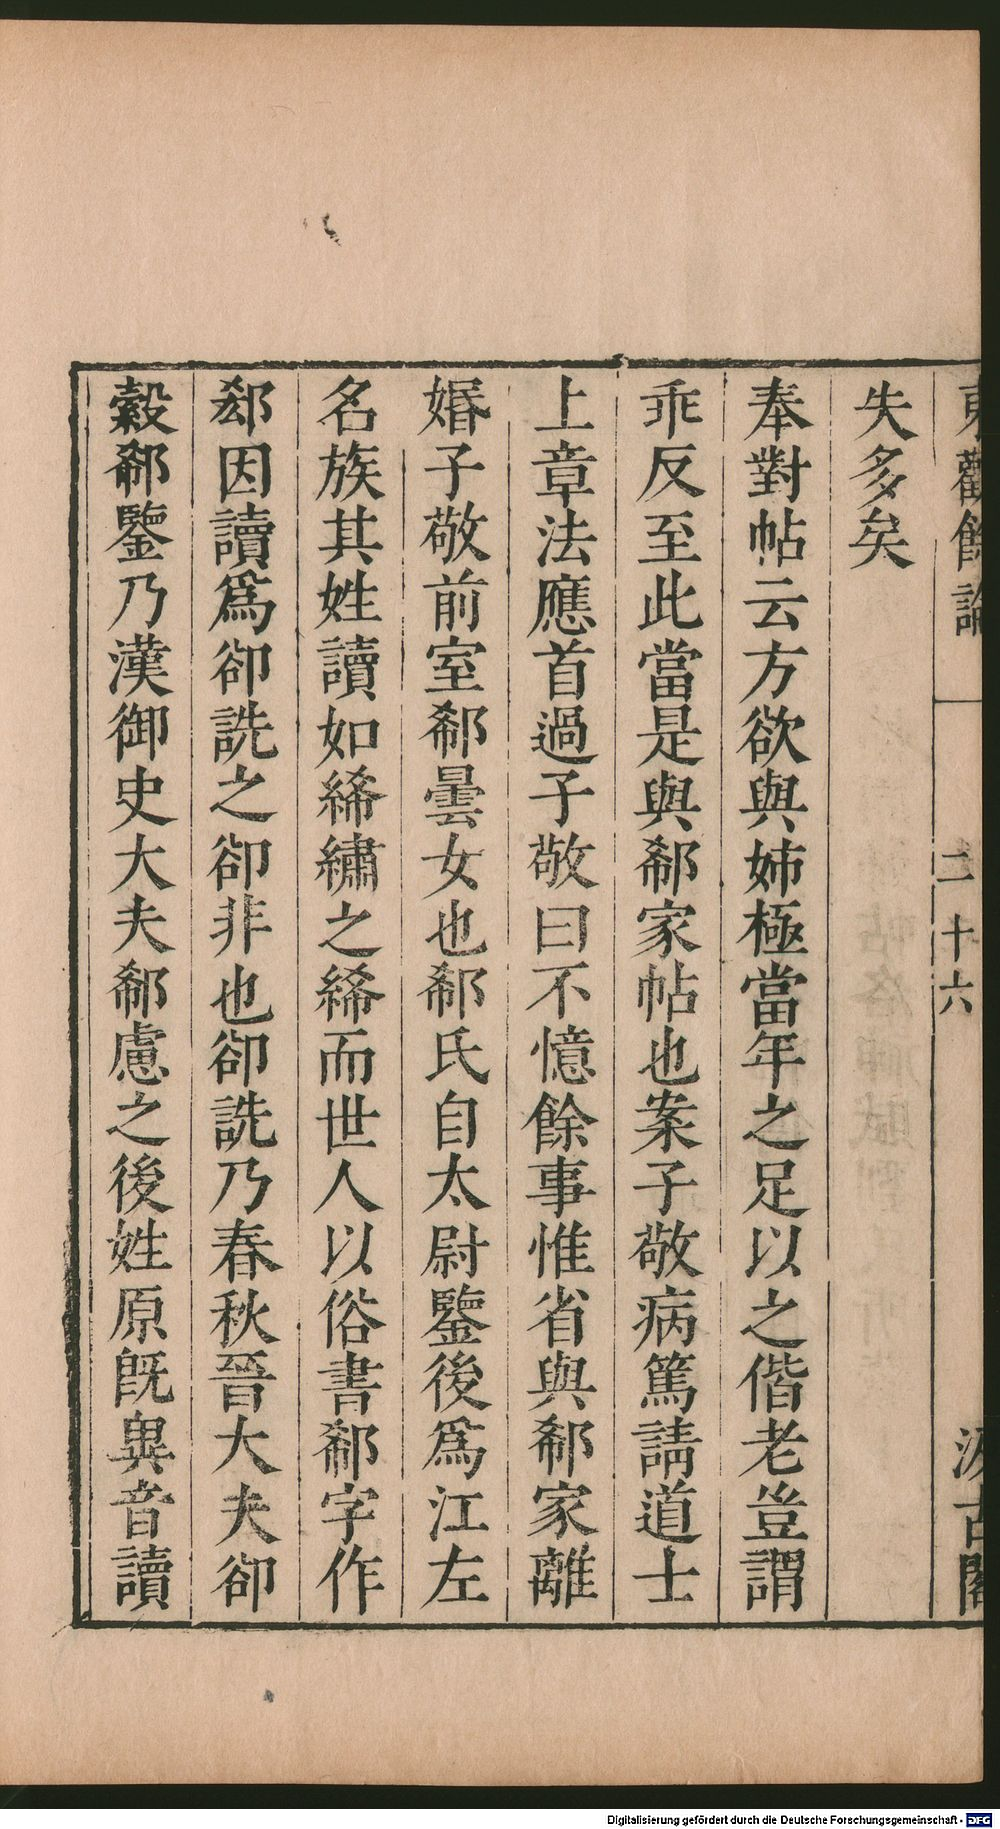 東觀餘論 二十六 汲古閣
失多矣
奉對帖云方欲與姊極當年之足以之偕老豈謂
乖反至此當是與郗家帖也案子敬病篤請道士
上章法應首過子敬曰不憶餘事惟省與郗家離
婚子敬前室郗曇女也郗氏自太尉鑒後爲江左
名族其姓讀如絺繡之絺而世人以俗書郗字作
郄因讀爲卻詵之卻非也卻詵乃春秋晉大夫卻
縠郗鑒乃漢御史大夫郗慮之後姓原旣異音讀
Digitalisierung gefördert durch die Deutsche Forschungsgemeinschaft - DFG